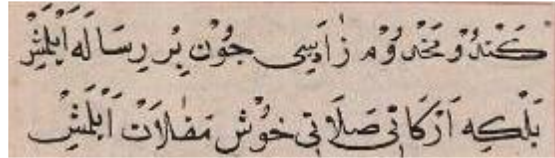 كَنْدُو مَخْدُوْم زَادَسِی جُوْن بِر رِسَالَه اَيْلَمِشْ
بَلْكِه اَرْكَانِی صَلَاتِی خُوْش مَقَالَاتْ اَيْلَمِشْ